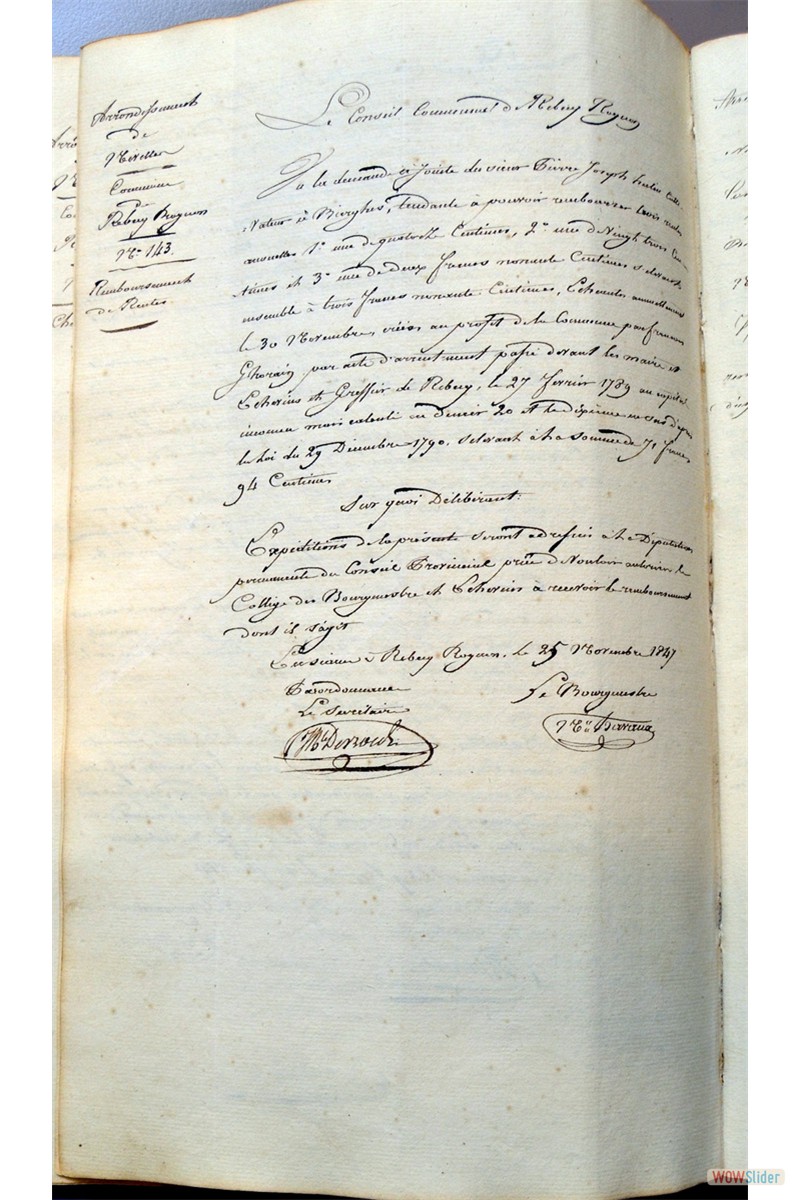 Arrondissement
de
Nivelles
Commune
de
Rebecq Rognon
No. 143.
Remboursement
de Rentes
Le Conseil Communal de Rebecq Rognon
Vu la demande ci jointe du sieur Pierre Joseph culti
vateur à Bierghes, tendante à pouvoir rembourser trois rentes
annuelles 1o une de quatorze Centimes, 2o une de Vingt trois Cen
times et 3o une de deux francs nonante Centimes s'élevant
ensemble à trois francs nonante Centimes, Echéantes annuellement
le 30 Novembre, créées au profit de la Commune par françois
Ghorain par acte d'arrentement passé devant les maire et
Echevins et Greffier de Rebecq, le 27 fevrier 1789 au capital
inconnu mais calculé au denier 20 et le dépense en sus d'après
la loi du 29 Décembre 1790. s'élevant à la somme de 71 francs
94 Centimes
Sur quoi Délibérant:
Expéditions de la présente seront adressées à la Députation
permanente du Conseil Provincial priée de Vouloir autoriser le
Collège des Bourgmestre et Echevins à recevoir le remboursement
dont il s'agit
En séance à Rebecq Rognon, le 25 Novembre 1847
Par ordonnance
Le Bourgmestre
Le Secrétaire
WOWSlider